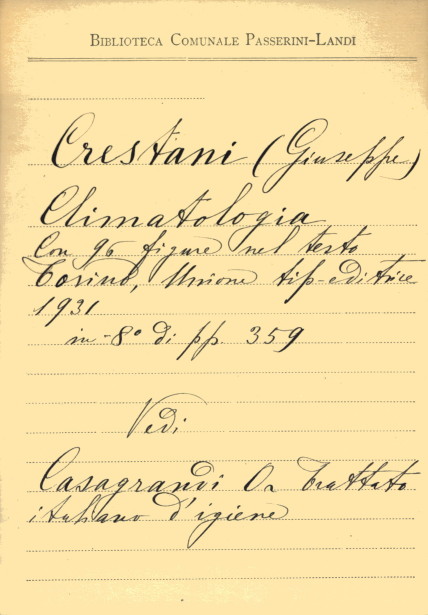 BIBLIOTECA COMUNALE PASSERINI-LANDI
Crestani (Giuseppe)
Climatologia
Con 96 figure nel testo
Torino, Unione tip-editrice
1931
in-8° di pp. 359
Vedi
Casagrandi O. Trattato
italiano d'igiene